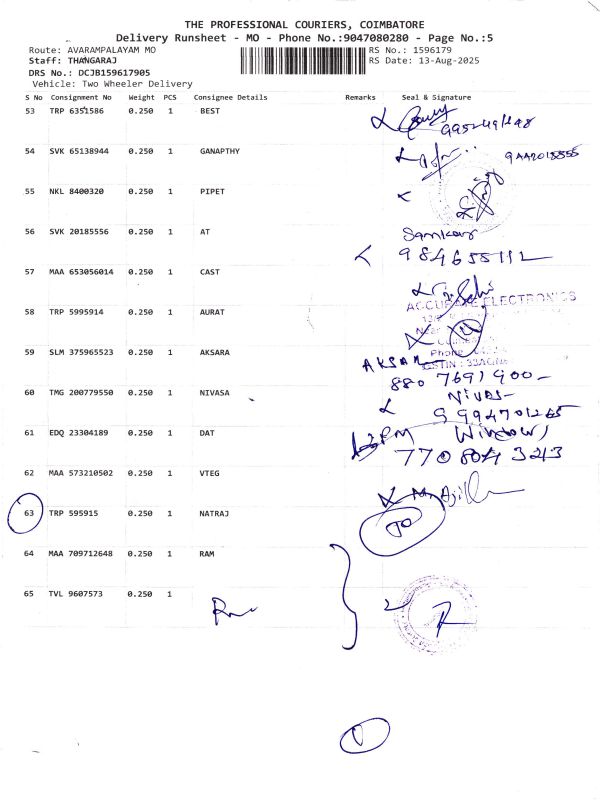 THE PROFESSIONAL COURIERS, COIMBATORE
Delivery Runsheet - MO - Phone No.:9047080280 - Page No.:5
Route: AVARAMPALAYAM MO RS No.: 1596179
Staff: THANGARAJ RS Date: 13-Aug-2025
DRS No.: DCJB159617905
Vehicle: Two Wheeler Delivery
S No Consignment No Weight PCS Consignee Details Remarks Seal & Signature
53 TRP 6351586 0.250 1 BEST
54 SVK 65138944 0.250 1 GANAPTHY
55 NKL 8400320 0.250 1 PIPET
56 SVK 20185556 0.250 1 AT
984655112
57 MAA 653056014 0.250 1 CAST
ACCURATE ELECTRONICS
58 TRP 5995914 0.250 1 AURAT
Phone
59 SLM 375965523 0.250 1 AKSARA
880 7691 900
60 TMG 200779550 0.250 1 NIVASA
9994701265
61 EDQ 23304189 0.250 1 DAT
62 MAA 573210502 0.250 1 VTEG
63 TRP 595915 0.250 1 NATRAJ
64 MAA 709712648 0.250 1 RAM
65 TVL 9607573 0.250 1